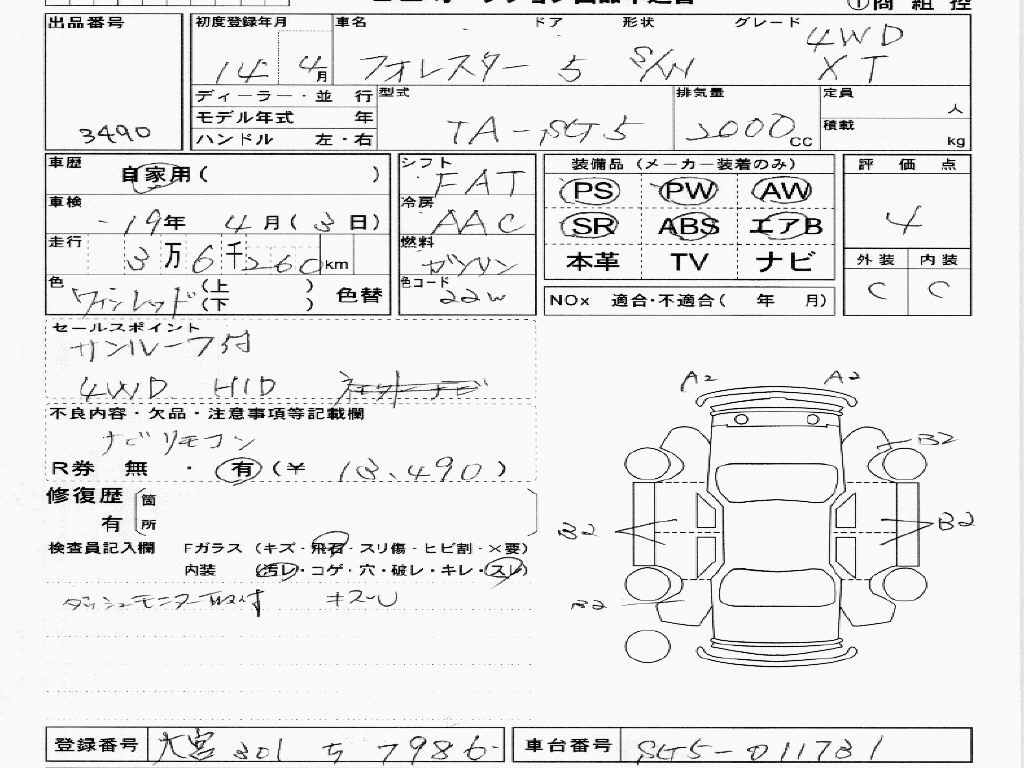 ①商 組 控
出品番号 3490
初度登録年月 14年 4月
車名 ドア 形状 グレード
フォレスター 5 S/W 4WD XT
ディーラー・並 行
モデル年式 年
ハンドル 左・右
型式 TA-SG5
排気量 2000cc
定員 人
積載 kg
車歴 自家用( )
車検 19年 4月(3日)
走行 3万6千260km
色 ワインレッド (上 ) (下 ) 色替
シフト FAT
冷房 AAC
燃料 ガソリン
色コード 22W
装備品(メーカー装着のみ)
PS PW AW
SR ABS エアB
本革 TV ナビ
NOx 適合・不適合( 年 月)
評価点 4
外装 内装
C C
セールスポイント
サンルーフ付
4WD HID
不良内容・欠品・注意事項等記載欄
ナビリモコン
R券 無 ・ 有 (¥ 13,490)
修復歴 有 箇所
検査員記入欄 Fガラス (キズ・飛石・スリ傷・ヒビ割・×要)
内装 (汚レ・コゲ・穴・破レ・キレ・スレ)
ダッシュモニター取付 キズU
A2 A2
B2
B2 B2
B2
登録番号 大宮 301 ち 7986
車台番号 SG5-011731